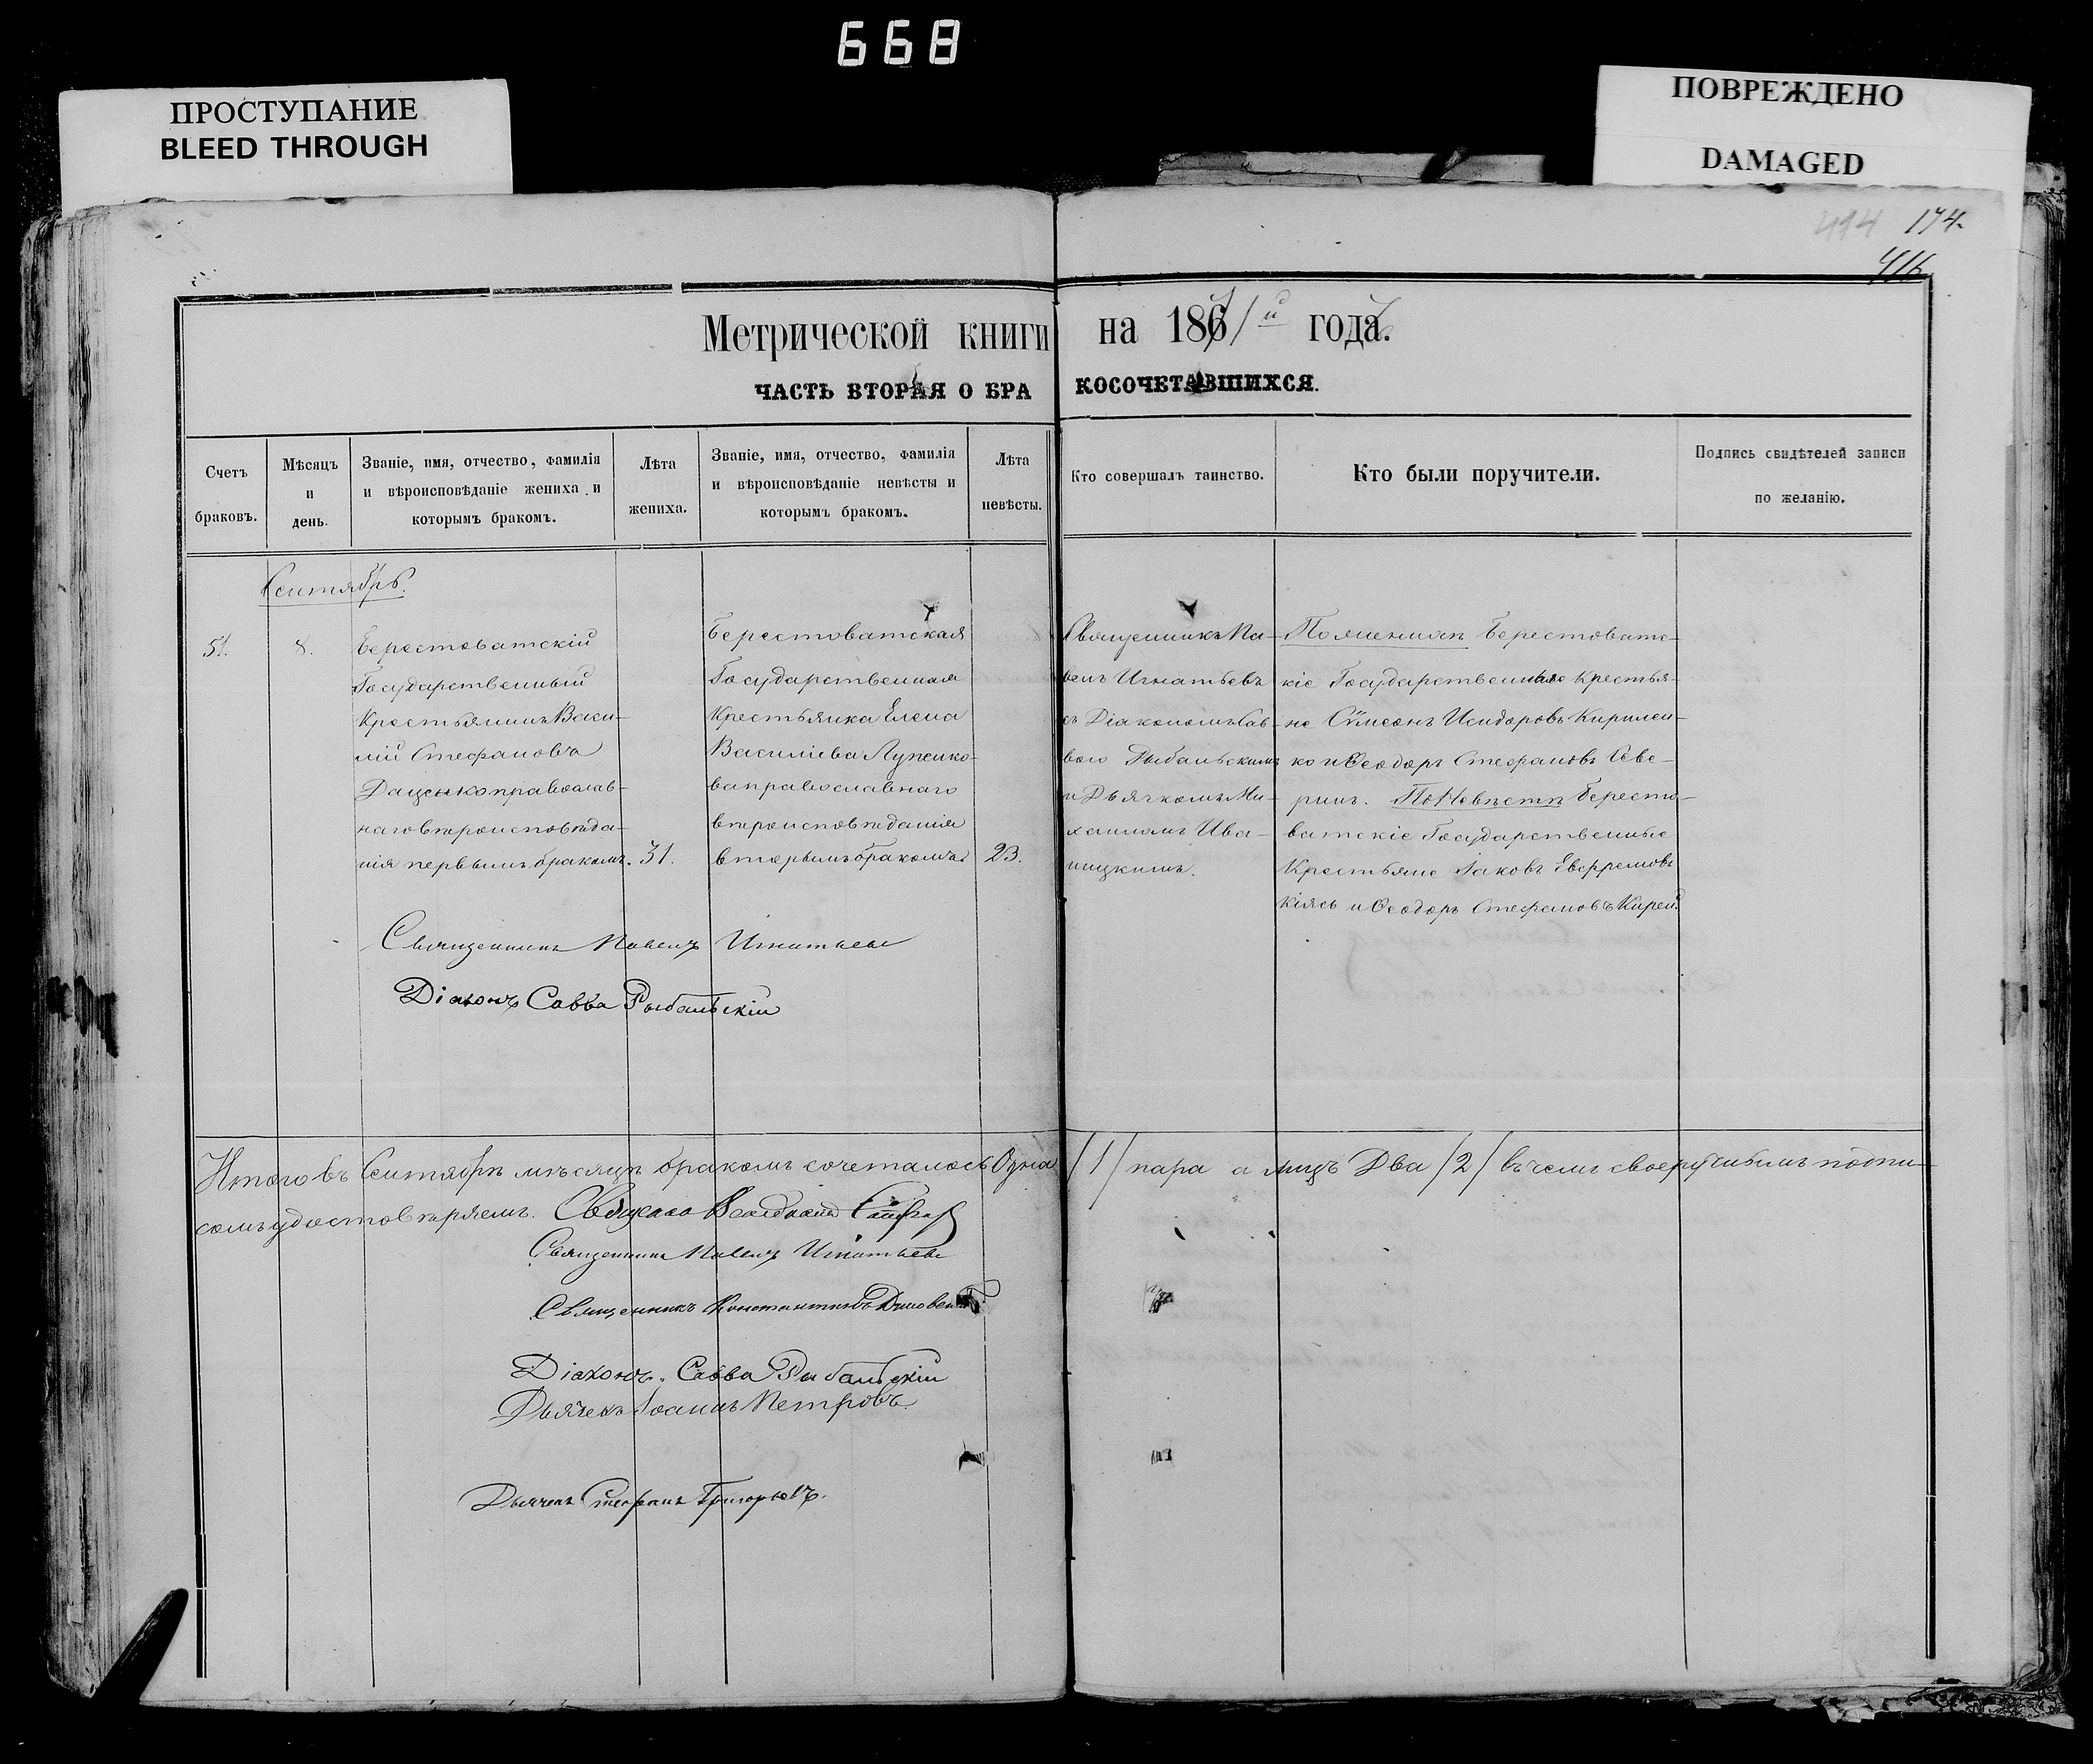 668
ПРОСТУПАНИЕ
BLEED THROUGH
ПОВРЕЖДЕНО
DAMAGED
414 174.
416
Метрической книги на 1861й года.
ЧАСТЬ ВТОРАЯ О БРАКОСОЧЕТАВШИХСЯ.
Счетъ
браковъ.
Мѣсяцъ
и
день.
Званіе, имя, отчество, фамилія
и вѣроисповѣданіе жениха и
которымъ бракомъ.
Лѣта
жениха.
Званіе, имя, отчество, фамилія
и вѣроисповѣданіе невѣсты и
которымъ бракомъ.
Лѣта
невѣсты.
Кто совершалъ таинство.
Кто были поручители.
Подпись свидѣтелей записи
по желанію.
Сентябрь.
51.
8.
Берестоватскій
Государственный
Крестьянинъ Васи-
лій Стефановъ
Даценко православ-
наго вѣроисповѣда-
нія первымъ бракомъ.
31.
Берестоватская
Государственная
Крестьянка Елена
Василіева Лупенко-
ва православнаго
вѣроисповѣданія
вторымъ бракомъ.
23.
Священникъ Па-
велъ Игнатьевъ
съ Діакономъ Сав-
вою Рыбальскимъ
и Дьячкомъ Ми-
хаиломъ Ива-
ницкимъ.
По женихѣ Берестоватс-
кіе Государственные Крестья-
не Сѵмеонъ Исидоровъ Кирилен-
ко и Ѳеодоръ Стефановъ Севе-
ринъ. По Невѣстѣ Бересто-
ватскіе Государственные
Крестьяне Іаковъ Евфремовъ
и Ѳеодоръ Стефановъ Кирей.
Священникъ Павелъ Игнатьевъ
Діаконъ Савва Рыбальскій
Итого въ Сентябрѣ мѣсяцѣ бракомъ сочеталось Одна /1/ пара а лицъ Два /2/ въ чемъ своеручнымъ подпи-
сомъ удостовѣряемъ.
Священникъ Павелъ Игнатьевъ
Священникъ Константинъ
Діаконъ Савва Рыбальскій
Дьячекъ Іоаннъ Петровъ.
Дьячекъ Стефанъ Григорьевъ.